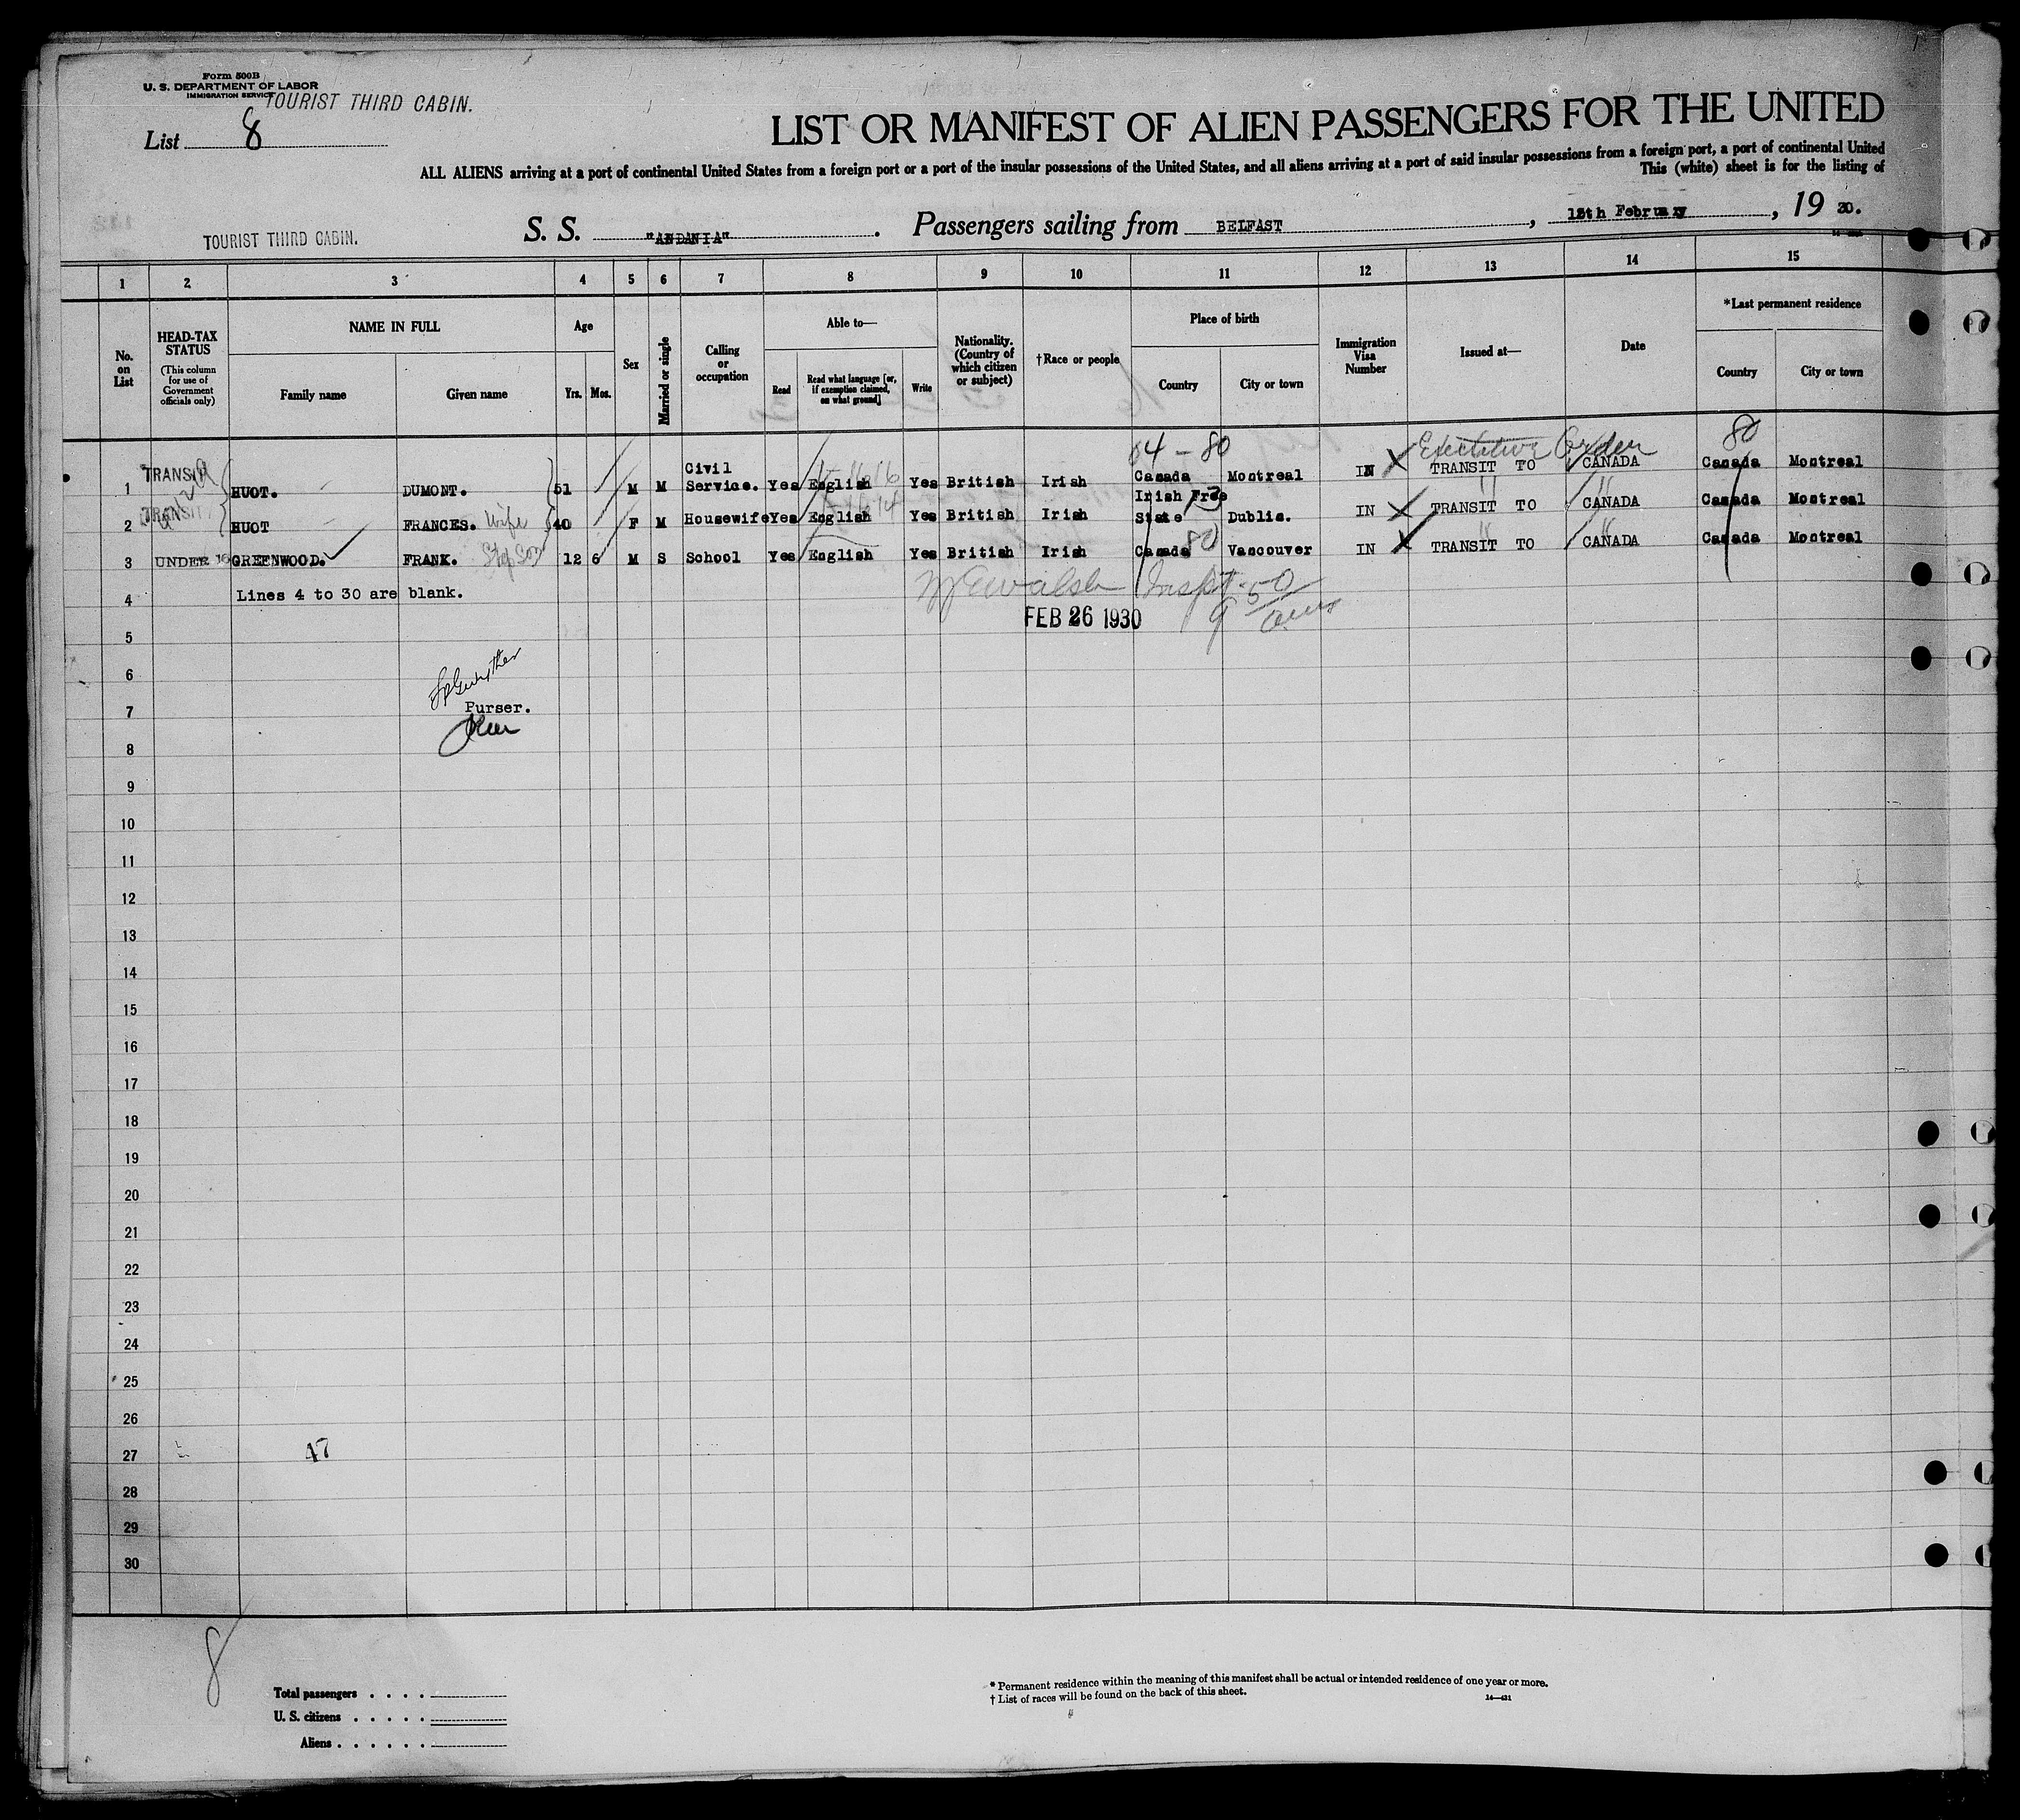 Form 500B
U. S. DEPARTMENT OF LABOR
IMMIGRATION SERVICE
TOURIST THIRD CABIN.
List 8
LIST OR MANIFEST OF ALIEN PASSENGERS FOR THE UNITED
ALL ALIENS arriving at a port of continental United States from a foreign port or a port of the insular possessions of the United States, and all aliens arriving at a port of said insular possessions from a foreign port, a port of continental United
This (white) sheet is for the listing of
TOURIST THIRD CABIN. S. S. "ANDANIA". Passengers sailing from BELFAST, 15th February, 19 30.
1 2 3 4 5 6 7 8 9 10 11 12 13 14 15
No. on List
HEAD-TAX STATUS
(This column for use of Government officials only)
NAME IN FULL
Family name Given name
Age
Yrs. Mos.
Sex
Married or single
Calling or occupation
Able to—
Read
Read what language [or, if exemption claimed, on what ground]
Write
Nationality. (Country of which citizen or subject)
†Race or people
Place of birth
Country City or town
Immigration Visa Number
Issued at—
Date
*Last permanent residence
Country City or town
04 - 80 Executive Order 80
1 TRANSIT HUOT. DUMONT. 51 M M Civil Service. Yes English Yes British Irish Canada Montreal IN X TRANSIT TO CANADA Canada Montreal
2 TRANSIT HUOT FRANCES. Wife 40 F M Housewife Yes English Yes British Irish Irish Free State Dublin. IN X TRANSIT TO CANADA Canada Montreal
3 UNDER 16 GREENWOOD. FRANK. Step Son 12 6 M S School Yes English Yes British Irish Canada 80 Vancouver IN X TRANSIT TO CANADA Canada Montreal
4 Lines 4 to 30 are blank.
Walsh Inspt.
FEB 26 1930
5
6
7 Purser.
8
9
10
11
12
13
14
15
16
17
18
19
20
21
22
23
24
25
26
27 47
28
29
30
8
Total passengers . . . .
U. S. citizens . . . . .
Aliens . . . . . .
* Permanent residence within the meaning of this manifest shall be actual or intended residence of one year or more.
† List of races will be found on the back of this sheet.
14—431